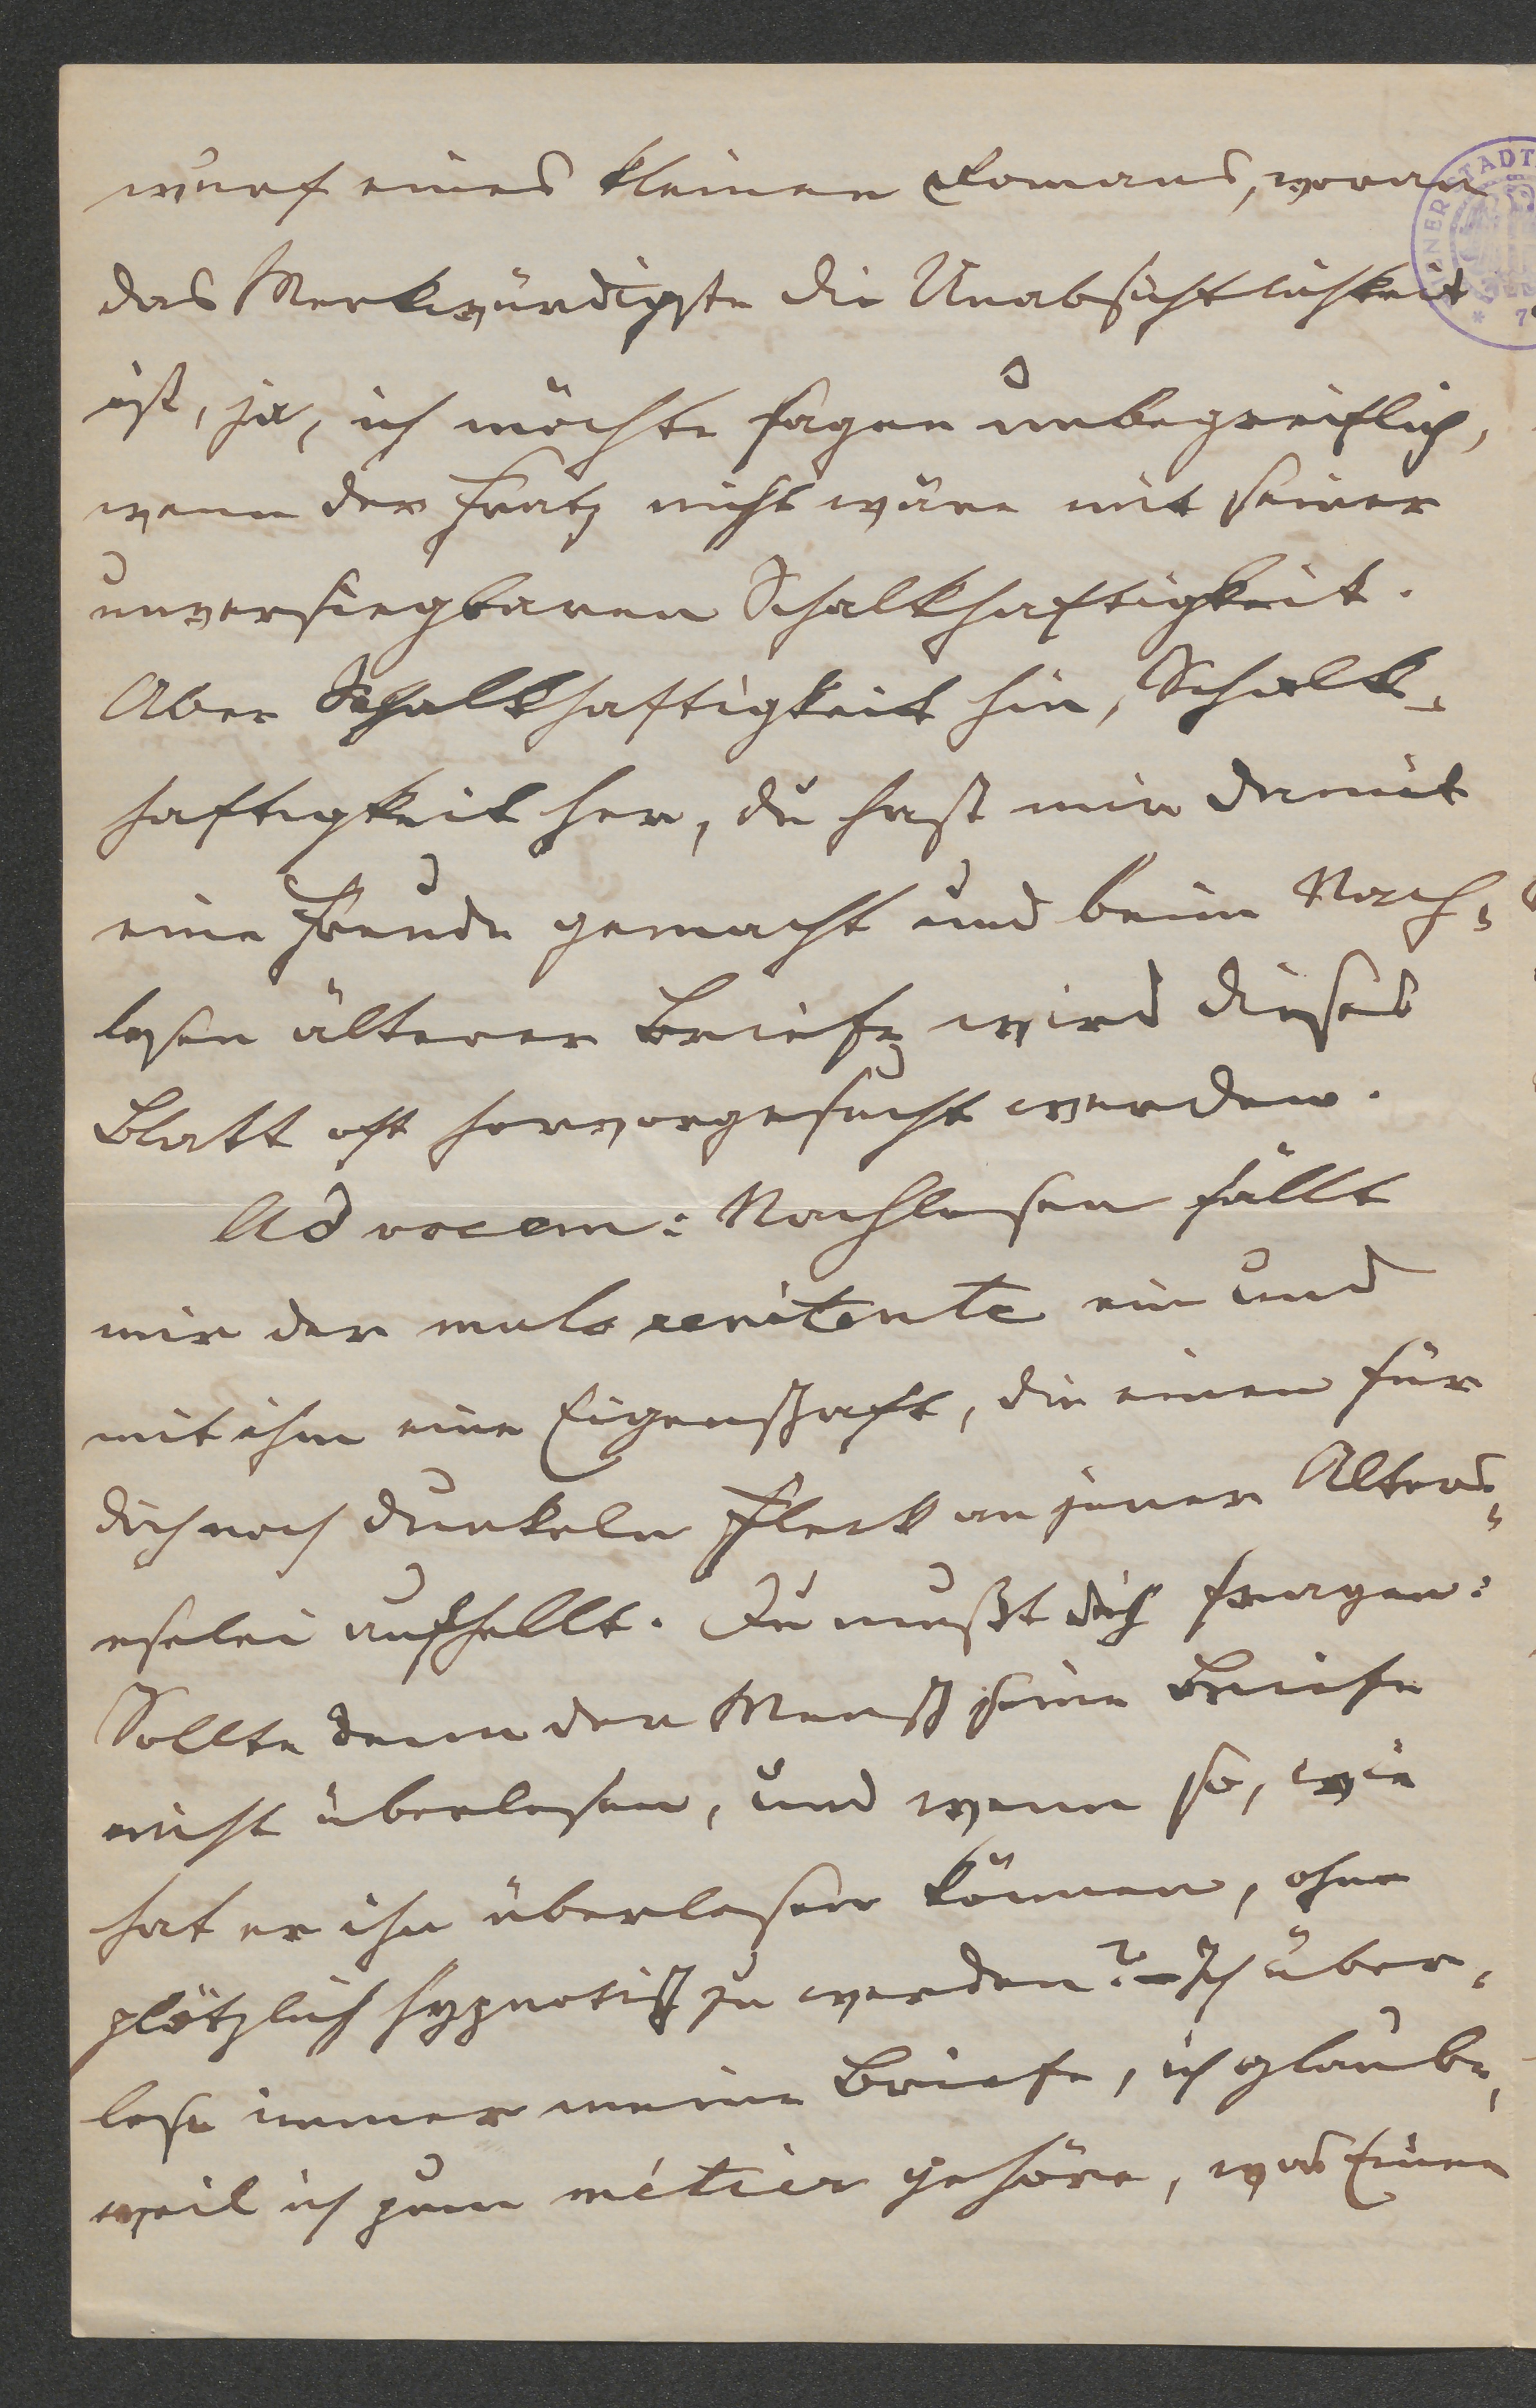 wurf eines kleinen Romans, woran
das Merkwürdigste die Unabsichtlichkeit
ist, ja, ich möchte sagen unbegreiflich,
wenn der Fratz nicht wäre mit seiner
unversiegbaren Schalkhaftigkeit.
Aber Schalkhaftigkeit hin, Schalk-
haftigkeit her, du hast mir damit
eine Freude gemacht und beim Nach-
lesen älterer Briefe wird dieses
Blatt oft hervorgesucht werden.
Ad vocem: Nachlesen fällt
mir der mulo ein und
mit ihm eine Eigenschaft, die einen für
dich noch dunkeln Fleck an jener Alters-
eselei aufhellt. Du mußt dich fragen:
Sollte denn der Mensch seine Briefe
nicht überlesen, und wenn so, wie
hat er ihn überlesen können, ohne
plötzlich hypnotisch zu werden? – Ich über-
lese immer meine Briefe, ich glaube,
weil ich zum métier gehöre, was Einen
STADT